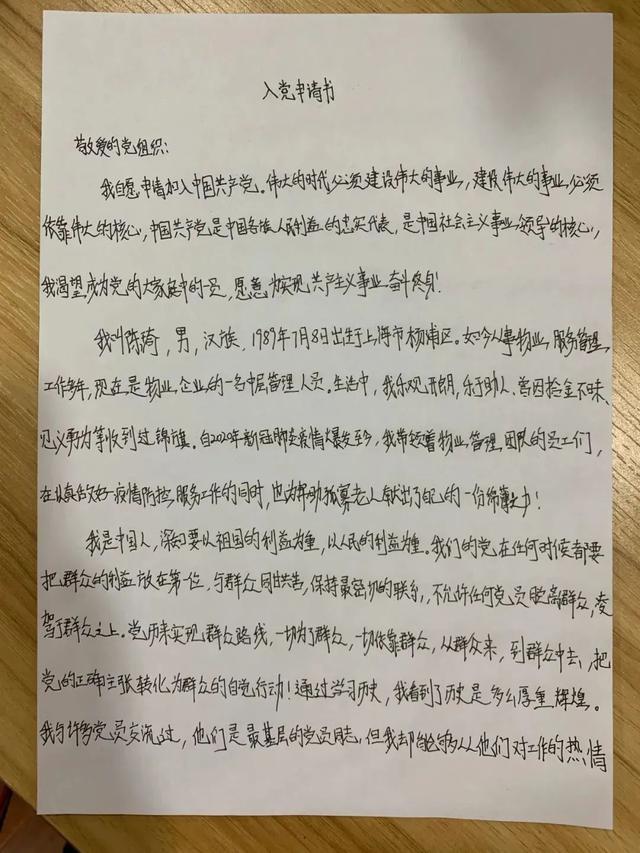 入党申请书
敬爱的党组织：
我自愿申请加入中国共产党。伟大的时代，必须建设伟大的事业，建设伟大的事业，必须
依靠伟大的核心，中国共产党是中国各族人民利益的忠实代表，是中国社会主义事业领导的核心，
我渴望成为党的大家庭中的一员，愿意为实现共产主义事业奋斗终身！
我叫陈琦，男，汉族，1989年7月8日出生于上海市杨浦区。如今从事物业服务管理
工作多年，现在是物业企业的一名中层管理人员。生活中，我乐观开朗，乐于助人、曾因拾金不昧、
见义勇为等收到过锦旗。自2020年新冠肺炎疫情爆发至今，我带领着物业管理团队的员工们，
在认真做好疫情防控服务工作的同时，也为帮助孤寡老人献出了自己的一份绵薄之力！
我是中国人，深知要以祖国的利益为重，以人民的利益为重。我们的党在任何时候都要
把群众的利益放在第一位，与群众同甘共苦，保持最密切的联系，不允许任何党员脱离群众，凌
驾于群众之上。党历来实现群众路线，一切为了群众，一切依靠群众，从群众来，到群众中去，把
党的正确主张转化为群众的自觉行动！通过学习历史，我看到了历史是多么厚重辉煌。
我与许多党员交流过，他们是最基层的党员同志，但我却能够从他们对工作的热情